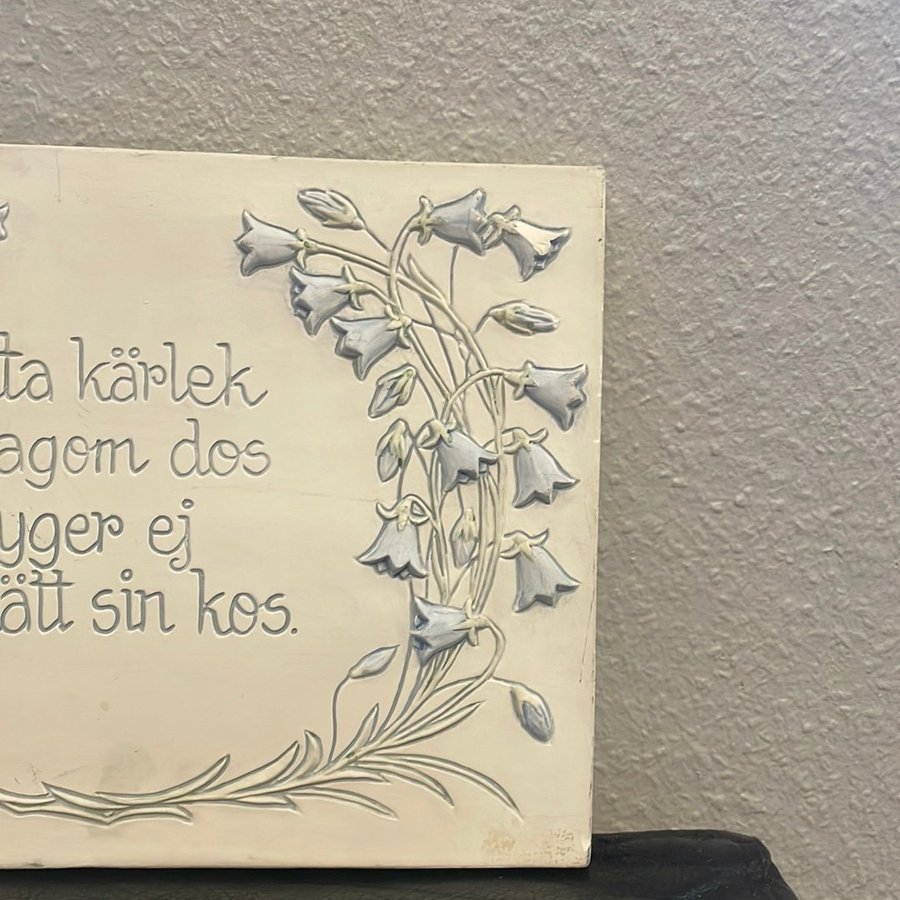 tta kärlek
agom dos
yger ej
ätt sin kos.